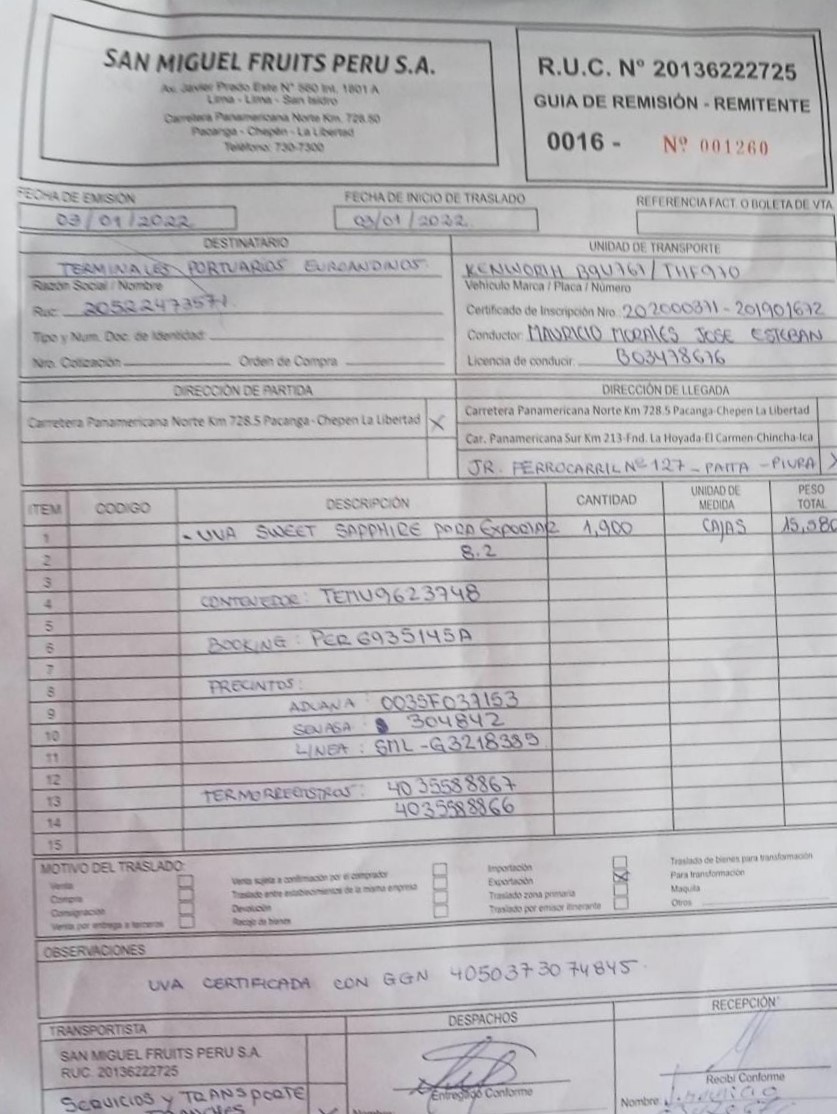 SAN MIGUEL FRUITS PERU S.A.
Av. Javier Prado Este N° 560 Int. 1801 A
Lima - Lima - San Isidro
Carretera Panamericana Norte Km. 728.50
Pacanga - Chepén - La Libertad
Teléfono: 730-7300
R.U.C. N° 20136222725
GUIA DE REMISIÓN - REMITENTE
0016 - Nº 001260
FECHA DE EMISIÓN
03/01/2022
FECHA DE INICIO DE TRASLADO
03/01/2022
REFERENCIA FACT. O BOLETA DE VTA.
DESTINATARIO
TERMINALES PORTUARIOS EUROANDINOS.
Razón Social / Nombre
Ruc: 20522473571.
Tipo y Num. Doc. de Identidad:
Nro. Cotización Orden de Compra
UNIDAD DE TRANSPORTE
KENWORTH B9U761/THF970
Vehículo Marca / Placa / Número
Certificado de Inscripción Nro. 202000371-201901672
Conductor MAURICIO MORALES JOSE ESTEBAN
Licencia de conducir B03478676
DIRECCIÓN DE PARTIDA
Carretera Panamericana Norte Km 728.5 Pacanga-Chepen La Libertad X
DIRECCIÓN DE LLEGADA
Carretera Panamericana Norte Km 728.5 Pacanga-Chepen La Libertad
Car. Panamericana Sur Km 213-Fnd. La Hoyada-El Carmen-Chincha-Ica
JR. FERROCARRIL Nº 127 - PAITA - PIURA X
ITEM CODIGO DESCRIPCIÓN CANTIDAD UNIDAD DE MEDIDA PESO TOTAL
1 - UVA SWEET SAPPHIRE PARA EXPORTAR 1,900 CAJAS 15,580
2 8.2
3
4 CONTENEDOR: TEMU9623748
5
6 BOOKING: PER6935145A
7
8 PRECINTOS:
9 ADUANA: 0035F037153
10 SENASA: 304842
11 LINEA: SML-G3218385
12
13 TERMORREGISTROS: 4035588867
14 4035588866
15
MOTIVO DEL TRASLADO:
Venta
Compra
Consignación
Venta por entrega a terceros
Venta sujeta a confirmación por el comprador
Traslado entre establecimientos de la misma empresa
Devolución
Recojo de bienes
Importación
Exportación X
Traslado zona primaria
Traslado por emisor itinerante
Traslado de bienes para transformación
Para transformación
Maquila
Otros
OBSERVACIONES
UVA CERTIFICADA CON GGN 4050373074845.
TRANSPORTISTA
SAN MIGUEL FRUITS PERU S.A.
RUC. 20136222725
SERVICIOS Y TRANSPORTE
DESPACHOS
Entregado Conforme
RECEPCIÓN
Recibí Conforme
Nombre